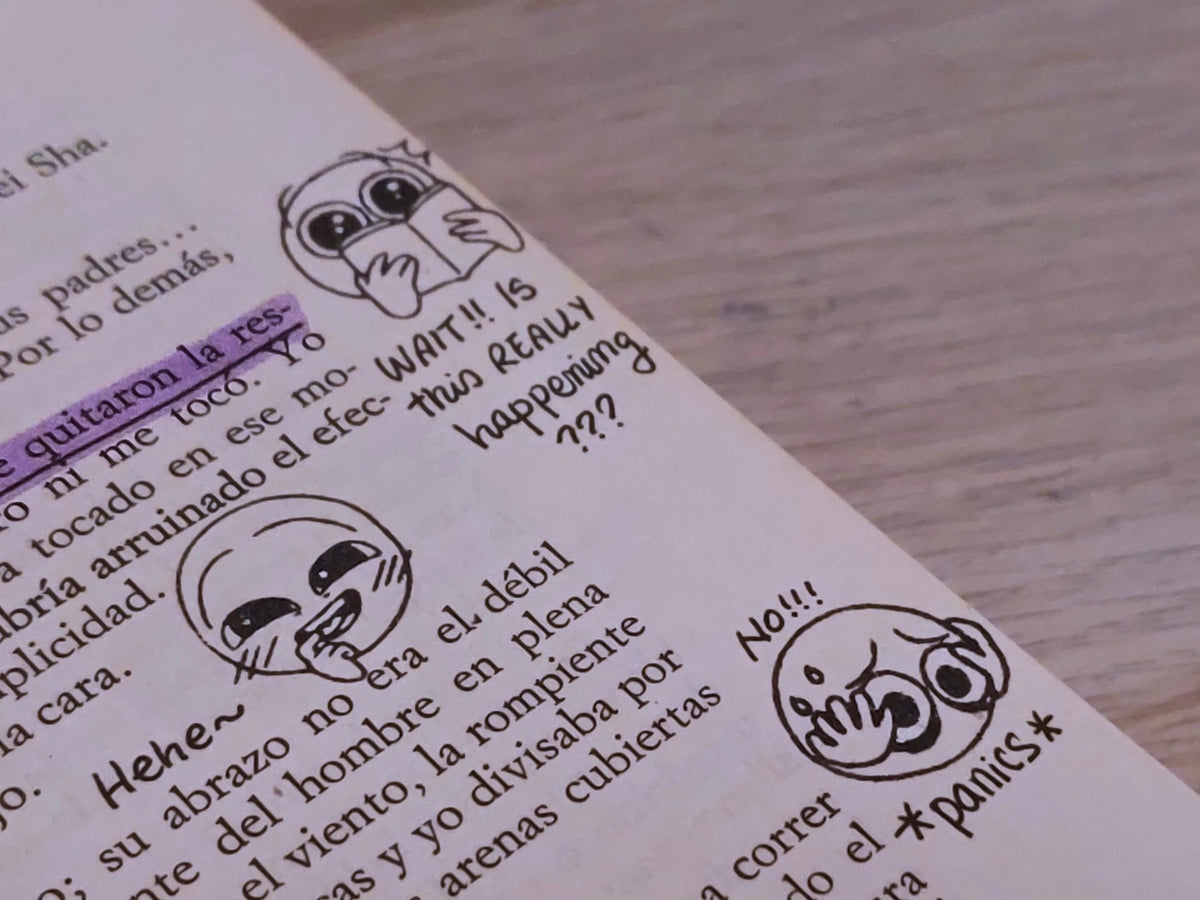 ei Sha.
padres...
Por lo demás,
quitaron la res-
ni me tocó. Yo
tocado en ese mo-
arruinado el efec-
la cara.
WAIT!! IS
this REALLY
happening
???
Hehe~
su abrazo no era el débil
del hombre en plena
el viento, la rompiente
y yo divisaba por
arenas cubiertas
No!!!
*panics*
correr
el